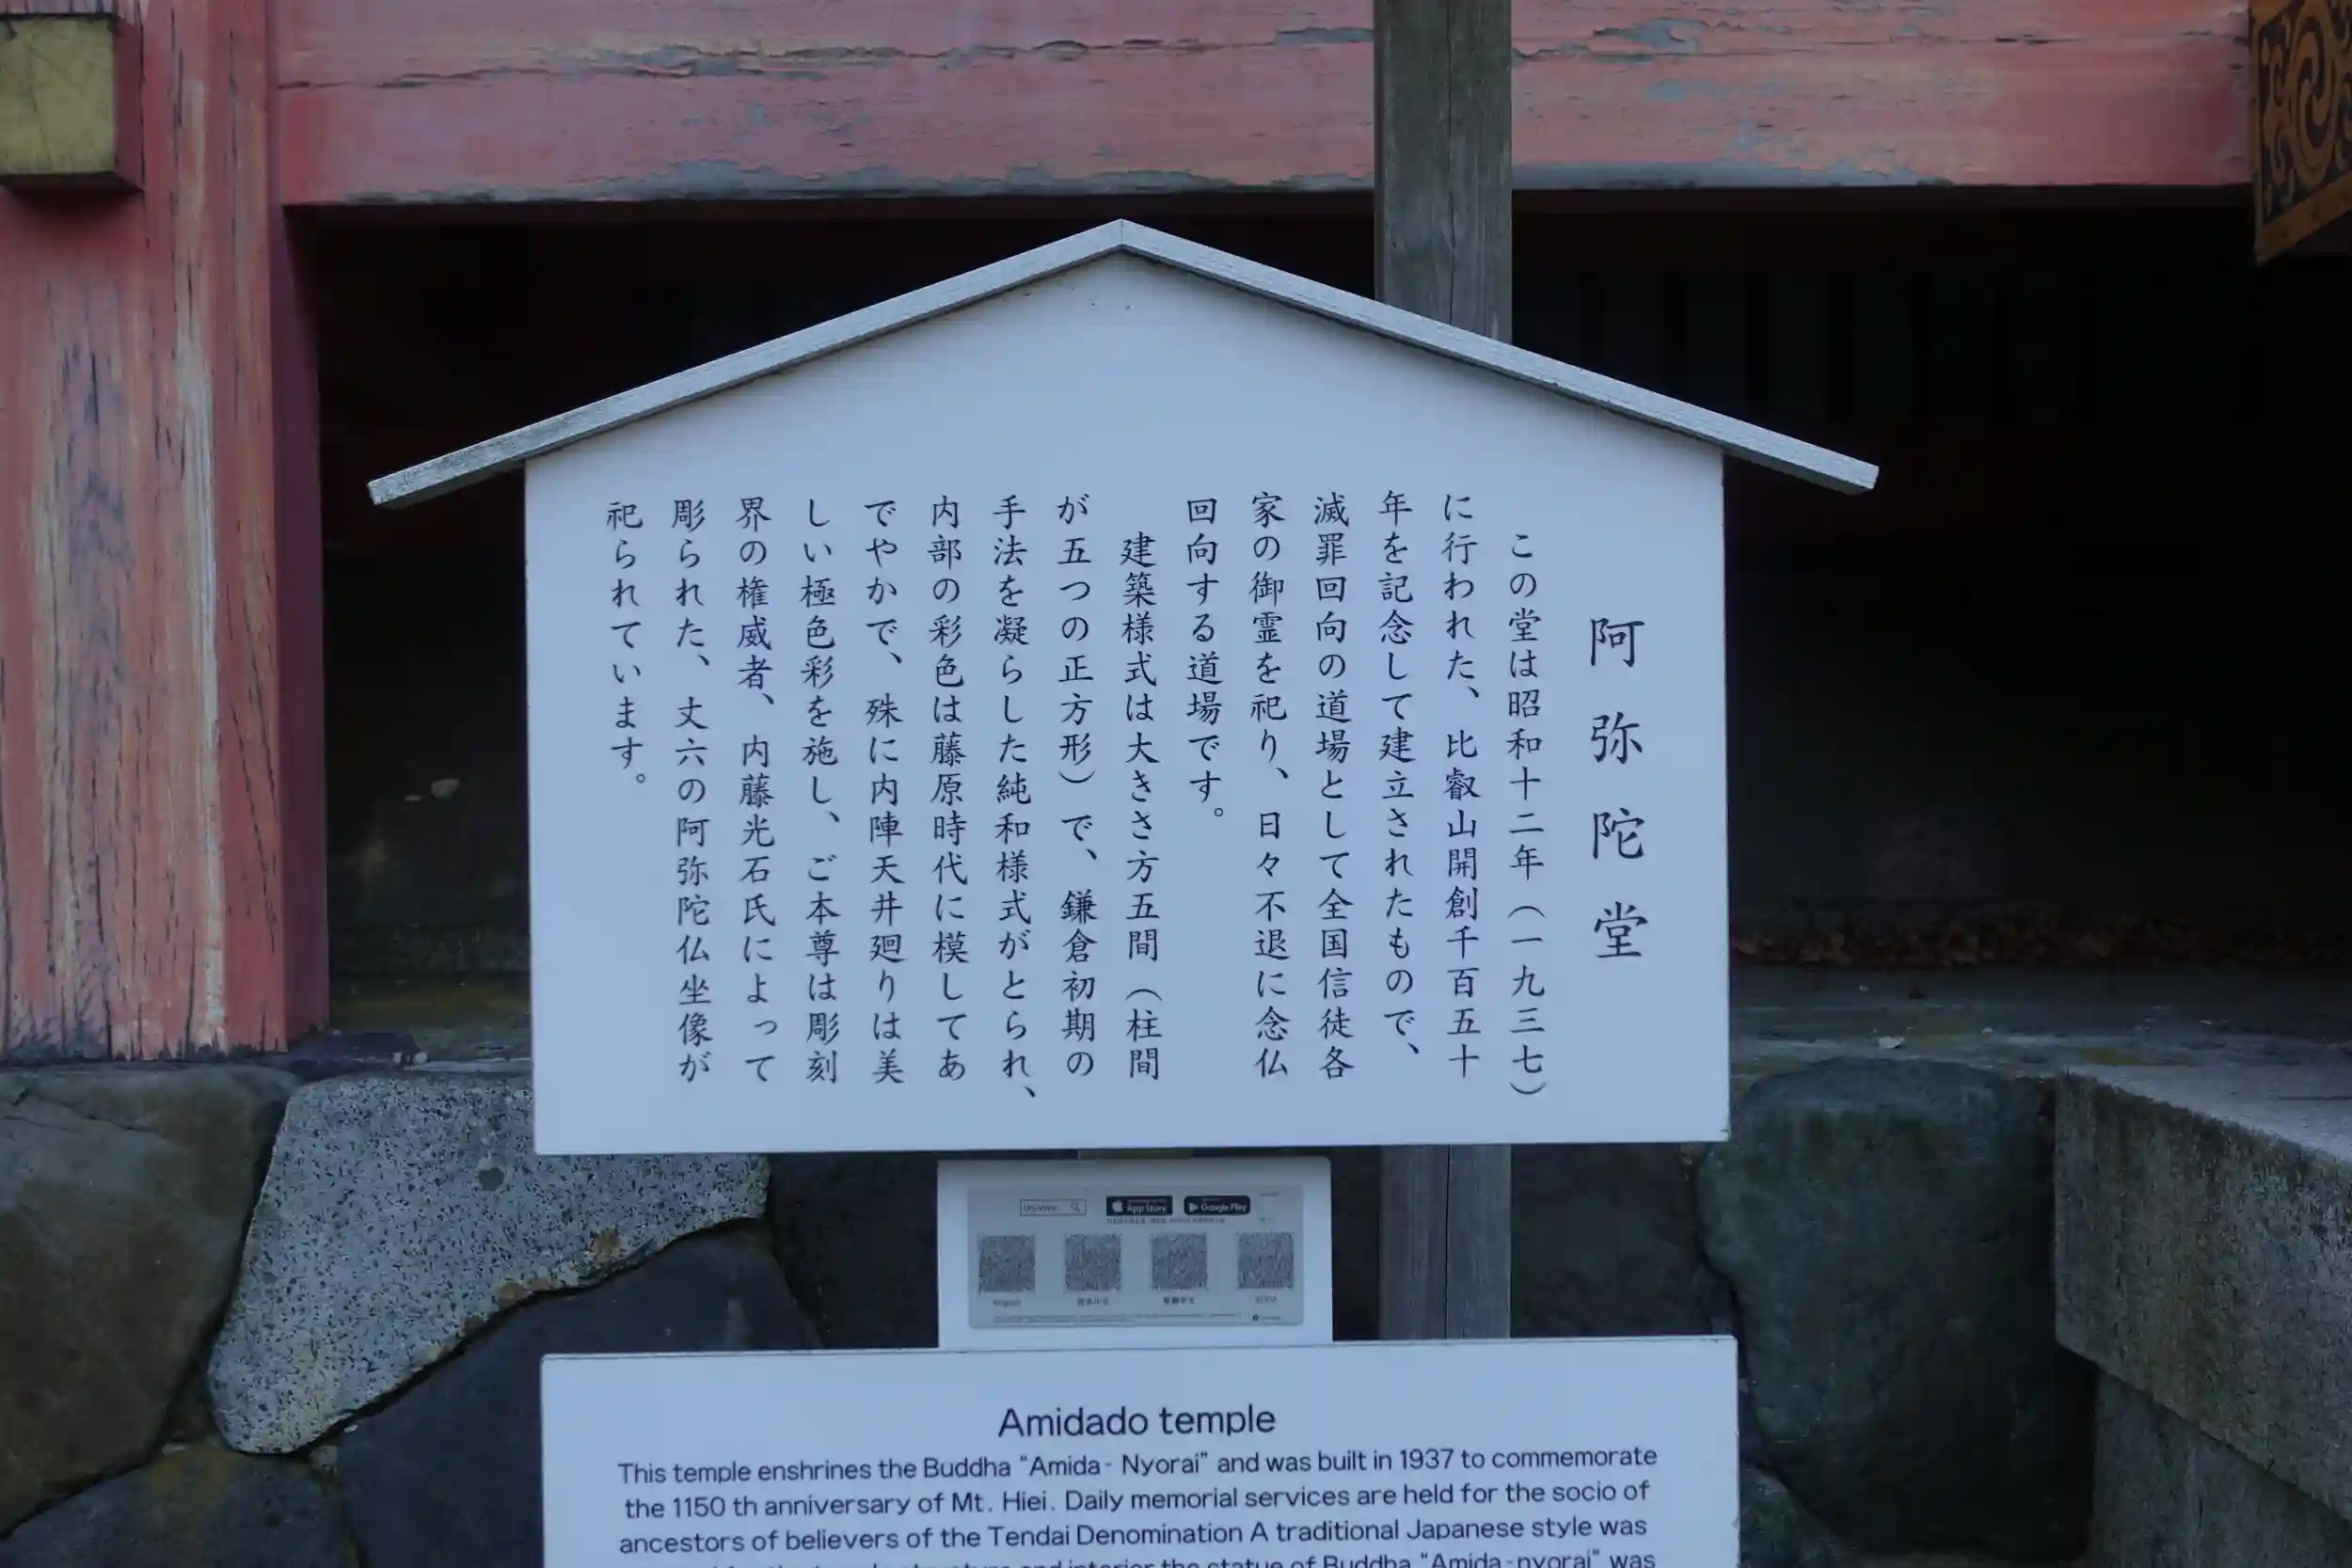 阿弥陀堂
この堂は昭和十二年（一九三七）
に行われた、比叡山開創千百五十
年を記念して建立されたもので、
滅罪回向の道場として全国信徒各
家の御霊を祀り、日々不退に念仏
回向する道場です。
建築様式は大きさ方五間（柱間
が五つの正方形）で、鎌倉初期の
手法を凝らした純和様式がとられ、
内部の彩色は藤原時代に模してあ
でやかで、殊に内陣天井廻りは美
しい極色彩を施し、ご本尊は彫刻
界の権威者、内藤光石氏によって
彫られた、丈六の阿弥陀仏坐像が
祀られています。
App Store
Google Play
English
简体中文
繁體中文
한국어
Amidado temple
This temple enshrines the Buddha "Amida- Nyorai" and was built in 1937 to commemorate
the 1150 th anniversary of Mt. Hiei. Daily memorial services are held for the socio of
ancestors of believers of the Tendai Denomination A traditional Japanese style was
the statue of Buddha "Amida-nyorai" was